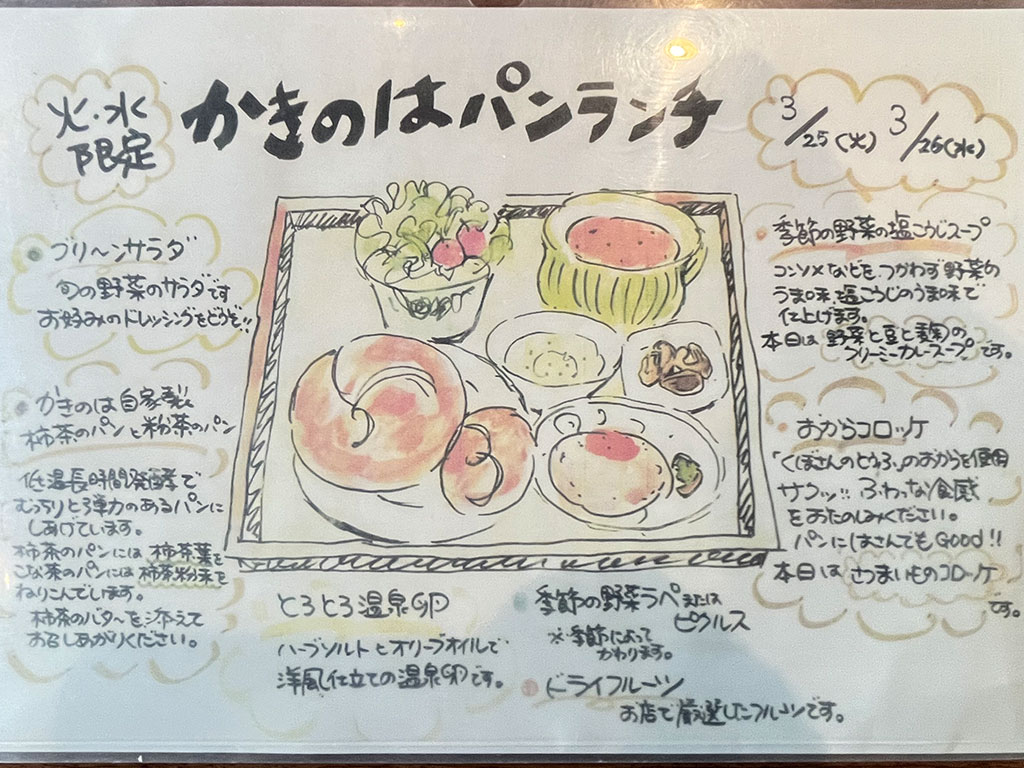 火・水
限定
かきのはパンランチ
3/25(火) 3/26(水)
グリーンサラダ
旬の野菜のサラダです
お好みのドレッシングをどうぞ!!
かきのは自家製
柿茶のパンと粉茶のパン
低温長時間発酵で
むっちりと弾力のあるパンに
しあげています。
柿茶のパンには柿茶葉を
こな茶のパンには柿茶粉末を
ねりこんでします。
柿茶のバターを添えて
おめしあがりください。
季節の野菜の塩こうじスープ
コンソメなどをつかわず野菜の
うま味、塩こうじのうま味で
仕上げます。
本日は野菜と豆と麹の
クリーミーカレースープです。
おからコロッケ
「くぼさんのとうふ」のおからを使用
サクッ!!ふわっな食感
をおたのしみください。
パンにはさんでもGood!!
本日はさつまいものコロッケ
です。
とろとろ温泉卵
ハーブソルトとオリーブオイルで
洋風仕立ての温泉卵です。
季節の野菜ラペまたは
ピクルス
※季節によって
かわります。
ドライフルーツ
お店で厳選したフルーツです。